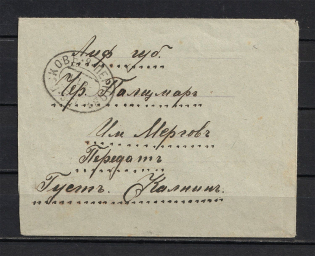 Лиф губ.
Чр. Палцмар
Им Мерговъ
Передатъ
Густ. Калнин.